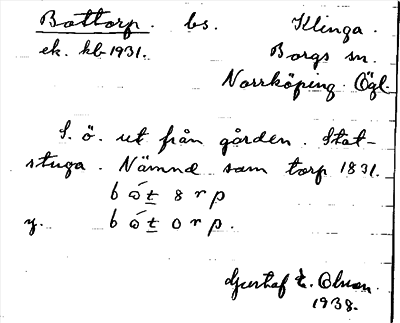 Bottorp. bs. Klinga.
ek. kb 1931. Borgs sn.
Norrköping. Ögl.
S. ö. ut från gården. Stat-
stuga. Nämnd som torp 1831.
b ó t 8 r p
y. b ó t o r p.
Gustaf E. Olsson.
1938.